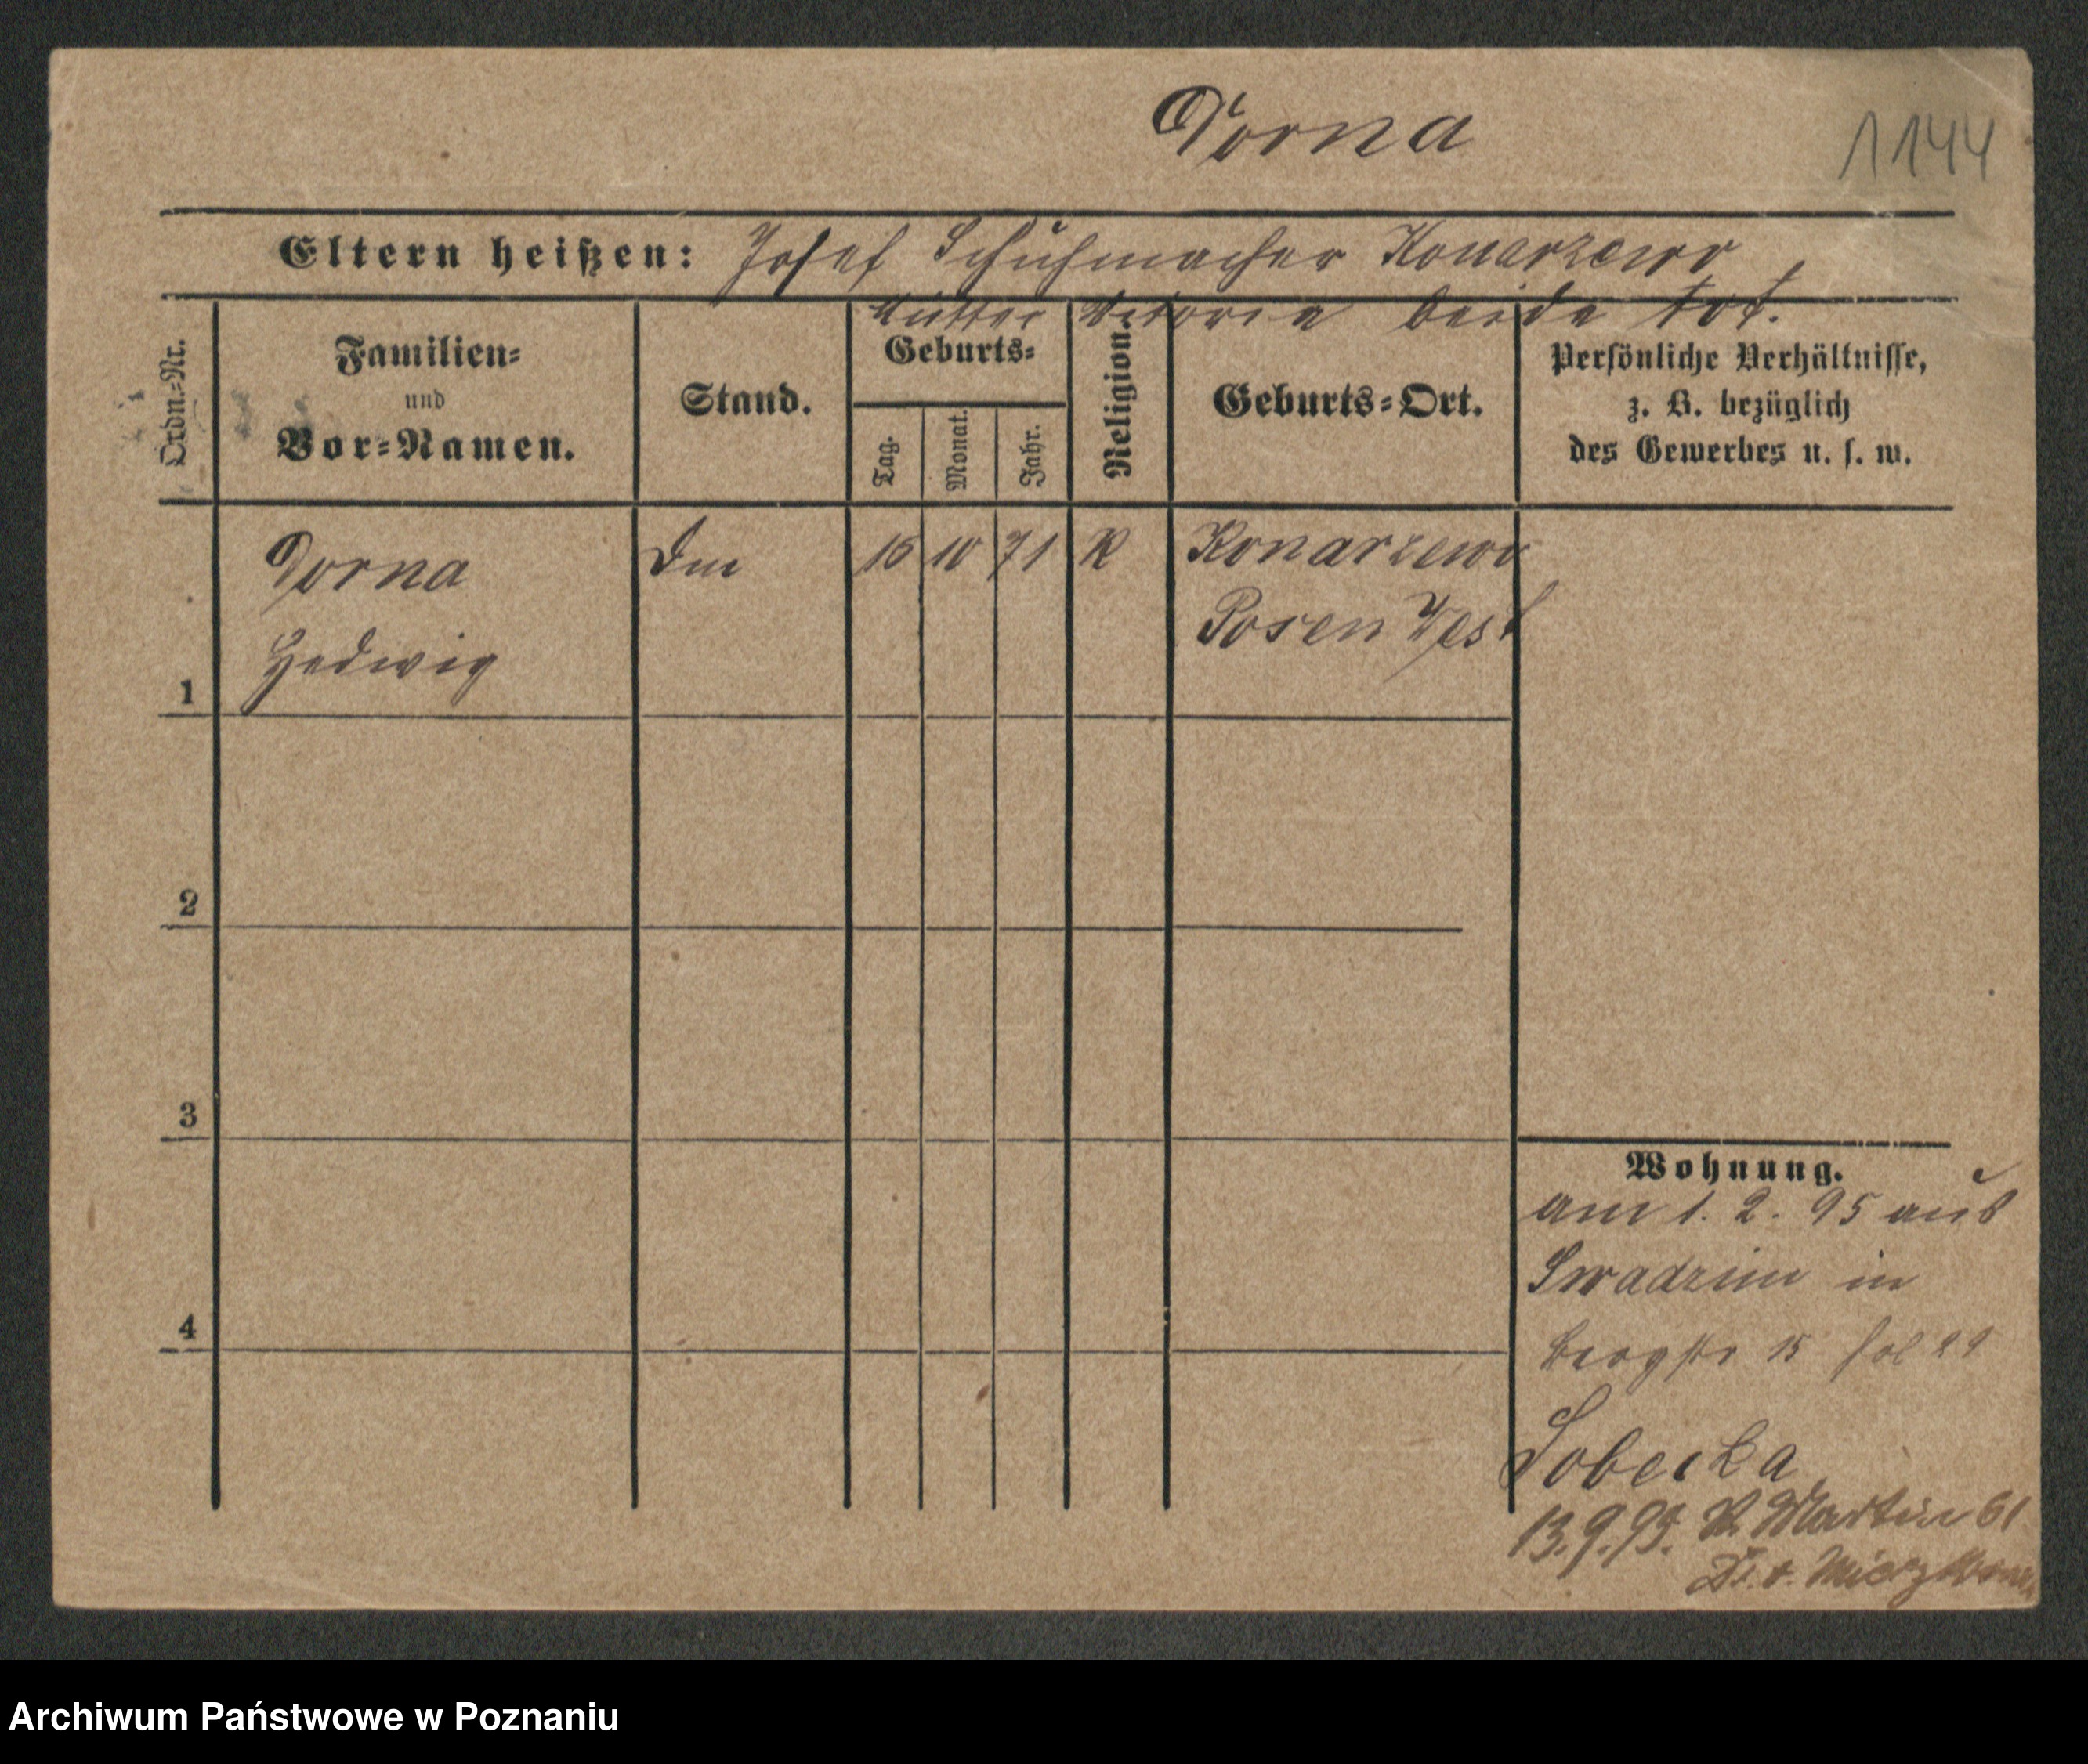 Dorna
1144
Eltern heißen: Josef Schuhmacher Konarzewo
Mutter Victoria beide tot.
Ordn.=Nr.
Familien=
und
Vor=Namen.
Stand.
Geburts=
Tag.
Monat.
Jahr.
Religion.
Geburts=Ort.
Persönliche Verhältnisse,
z. B. bezüglich
des Gewerbes u. s. w.
Dorna
Hedwig
16 10 71 K
Konarzewo
Posen West
1
2
3
4
Wohnung.
am 1. 2. 95 aus
Swadzim in
Bergstr 15 fol 29
Sobecka
13.9.95. St. Martin 61
Archiwum Państwowe w Poznaniu